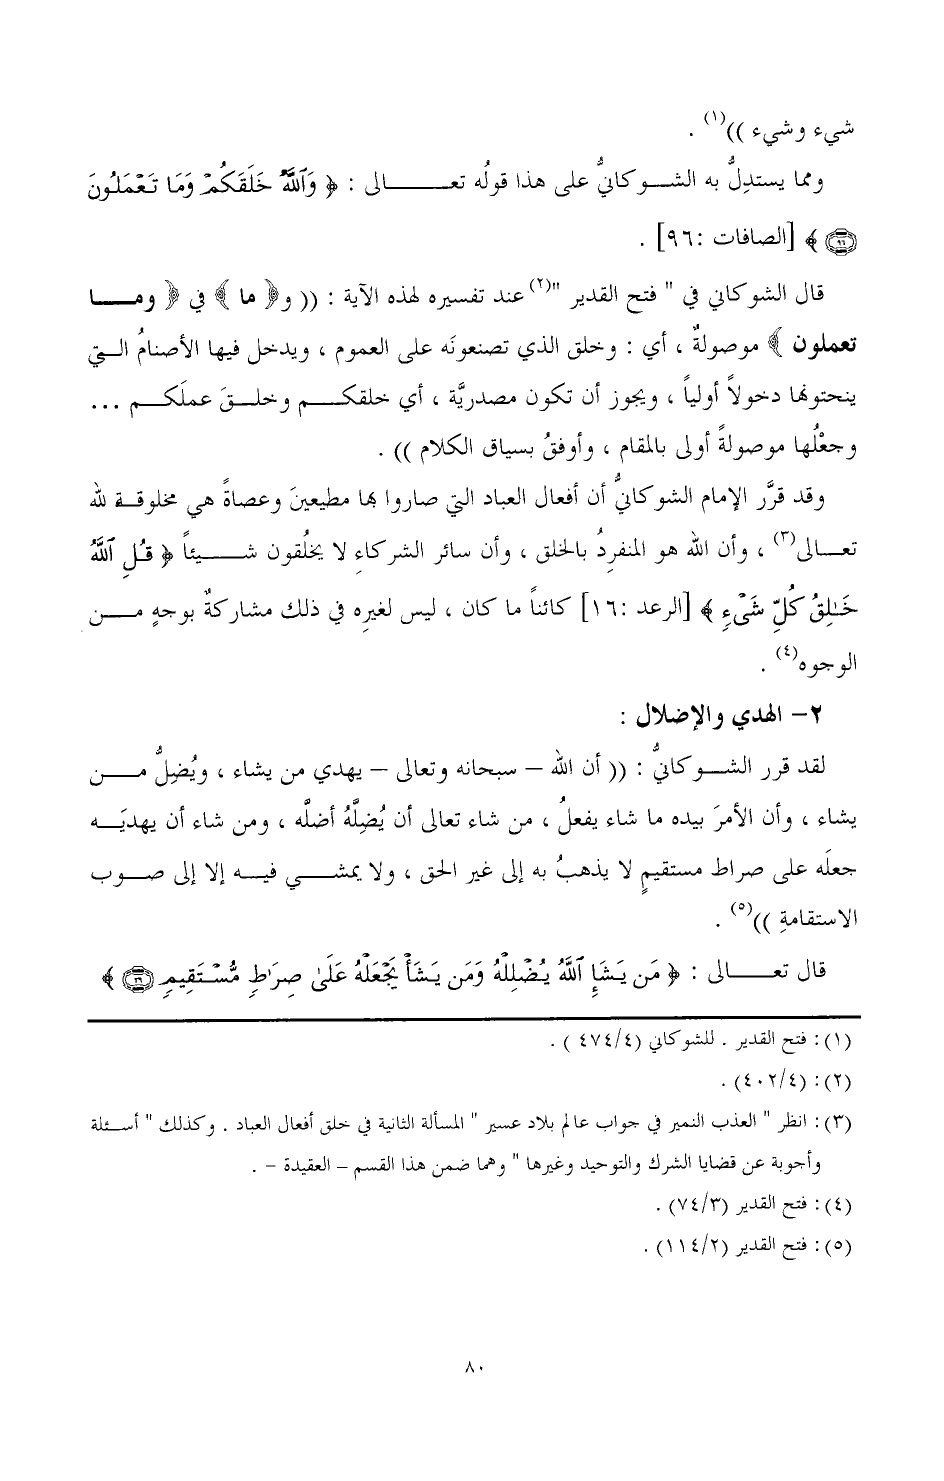 شيء وشيء ))(١) .
ومما يستدِلُّ به الشوكانيُّ على هذا قولُه تعالى : ﴿ وَٱللَّهُ خَلَقَكُمْ وَمَا تَعْمَلُونَ
(٩٦) ﴾ [الصافات :٩٦] .
قال الشوكاني في " فتح القدير "(٢) عند تفسيره لهذه الآية : (( و﴿ ما ﴾ في ﴿ وما
تعملون ﴾ موصولةٌ ، أي : وخلق الذي تصنعونَه على العموم ، ويدخل فيها الأصنامُ التي
ينحتونها دخولاً أولياً ، ويجوز أن تكون مصدريَّة ، أي خلقكم وخلقَ عملَكم ...
وجعْلُها موصولةً أولى بالمقام ، وأوفقُ بسياق الكلام )) .
وقد قرَّر الإمام الشوكانيُّ أن أفعال العباد التي صاروا بها مطيعينَ وعصاةً هي مخلوقة لله
تعالى(٣) ، وأن الله هو المنفرِدُ بالخلق ، وأن سائر الشركاءِ لا يخلُقون شيئاً ﴿ قُلِ ٱللَّهُ
خَـٰلِقُ كُلِّ شَىْءٍ ﴾ [الرعد :١٦] كائناً ما كان ، ليس لغيرِه في ذلك مشاركةٌ بوجهٍ من
الوجوه(٤) .
٢– الهدي والإضلال :
لقد قرر الشوكانيُّ : (( أن الله – سبحانه وتعالى – يهدي من يشاء ، ويُضِلُّ من
يشاء ، وأن الأمرَ بيده ما شاء يفعلُ ، من شاء تعالى أن يُضِلَّهُ أضلَّه ، ومن شاء أن يهديَه
جعلَه على صراط مستقيمٍ لا يذهبُ به إلى غير الحق ، ولا يمشي فيه إلا إلى صوب
الاستقامةِ ))(٥) .
قال تعالى : ﴿ مَن يَشَإِ ٱللَّهُ يُضْلِلْهُ وَمَن يَشَأْ يَجْعَلْهُ عَلَىٰ صِرَٰطٍ مُّسْتَقِيمٍ (٣٩) ﴾
(١): فتح القدير . للشوكاني (٤٧٤/٤ ) .
(٢): (٤٠٢/٤) .
(٣): انظر " العذب النمير في جواب عالم بلاد عسير " المسألة الثانية في خلق أفعال العباد . وكذلك " أسئلة
وأجوبة عن قضايا الشرك والتوحيد وغيرها " وهما ضمن هذا القسم – العقيدة – .
(٤): فتح القدير (٧٤/٣) .
(٥): فتح القدير (١١٤/٢) .
٨٠